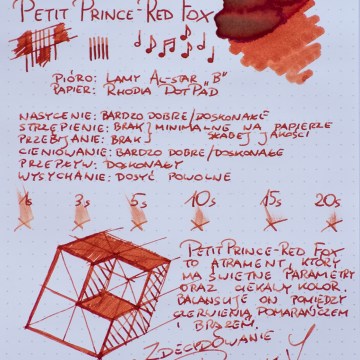 PETIT PRINCE-RED FOX
PIÓRO: LAMY AL-STAR „B"
PAPIER: RHODIA DOTPAD
NASYCENIE: BARDZO DOBRE/DOSKONAŁE
STRZĘPIENIE: BRAK/MINIMALNE NA PAPIERZE
PRZEBIJANIE: BRAK SŁABEJ JAKOŚCI
CIENIOWANIE: BARDZO DOBRE/DOSKONAŁE
PRZEPŁYW: DOSKONAŁY
WYSYCHANIE: DOSYĆ POWOLNE
1s 3s 5s 10s 15s 20s
PETIT PRINCE-RED FOX
TO ATRAMENT, KTÓRY
MA ŚWIETNE PARAMETRY
ORAZ CIEKAWY KOLOR.
BALANSUJE ON POMIĘDZY
CZERWIENIĄ POMARAŃCZEM
I BRĄZEM.
ZDECYDOWANIE